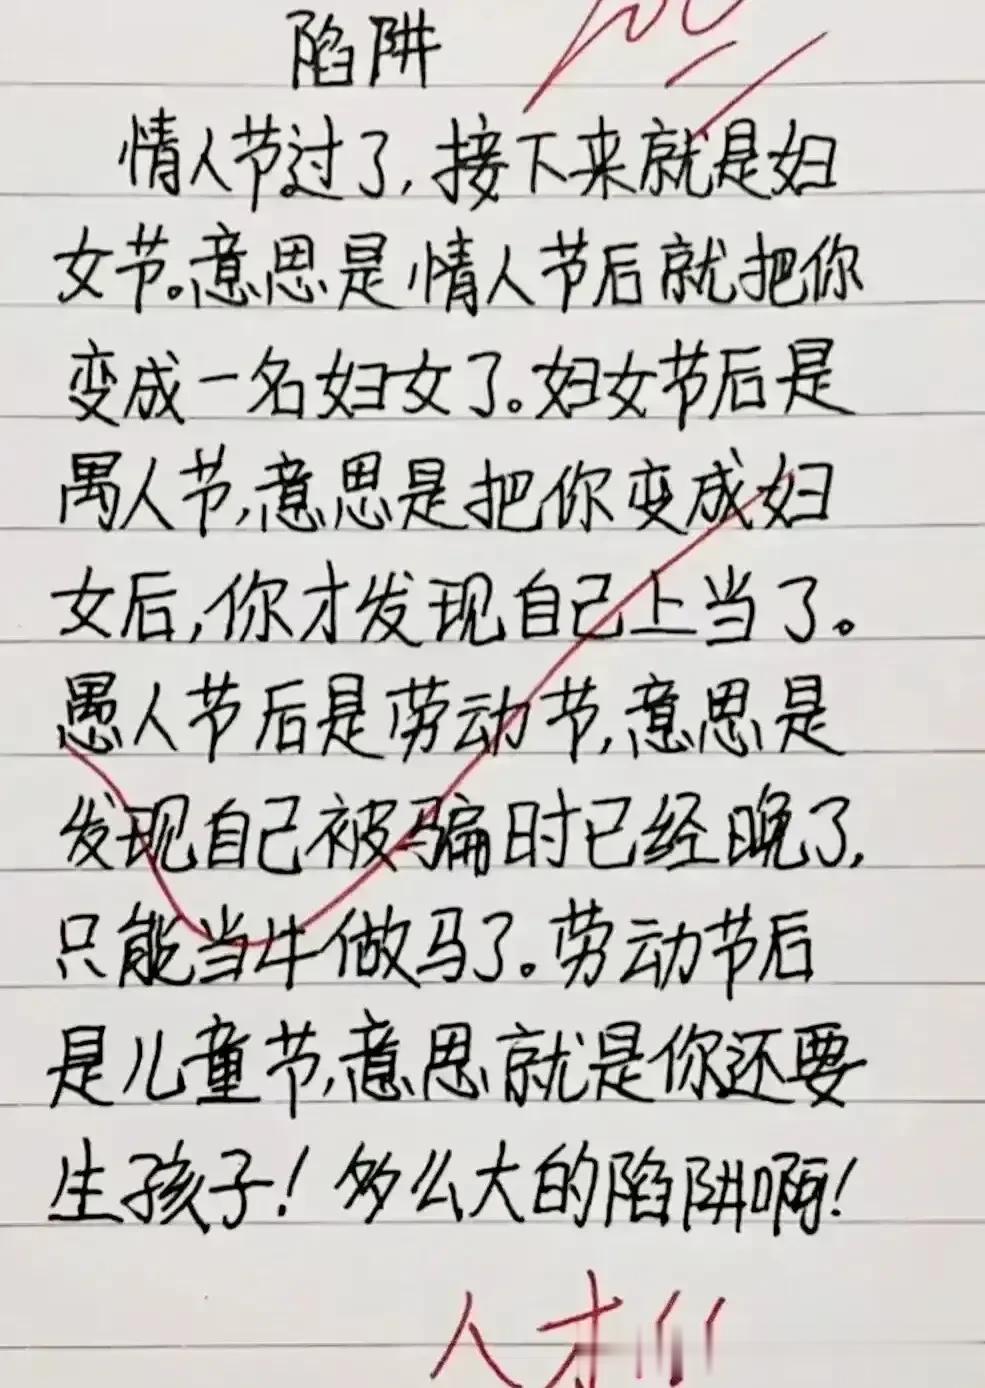 陷阱
100
情人节过了,接下来就是妇
女节。意思是情人节后就把你
变成一名妇女了。妇女节后是
禺人节,意思是把你变成妇
女后,你才发现自己上当了。
愚人节后是劳动节,意思是
发现自己被骗时已经晚了,
只能当牛做马了。劳动节后
是儿童节,意思就是你还要
生孩子!多么大的陷阱啊!
人才!!!